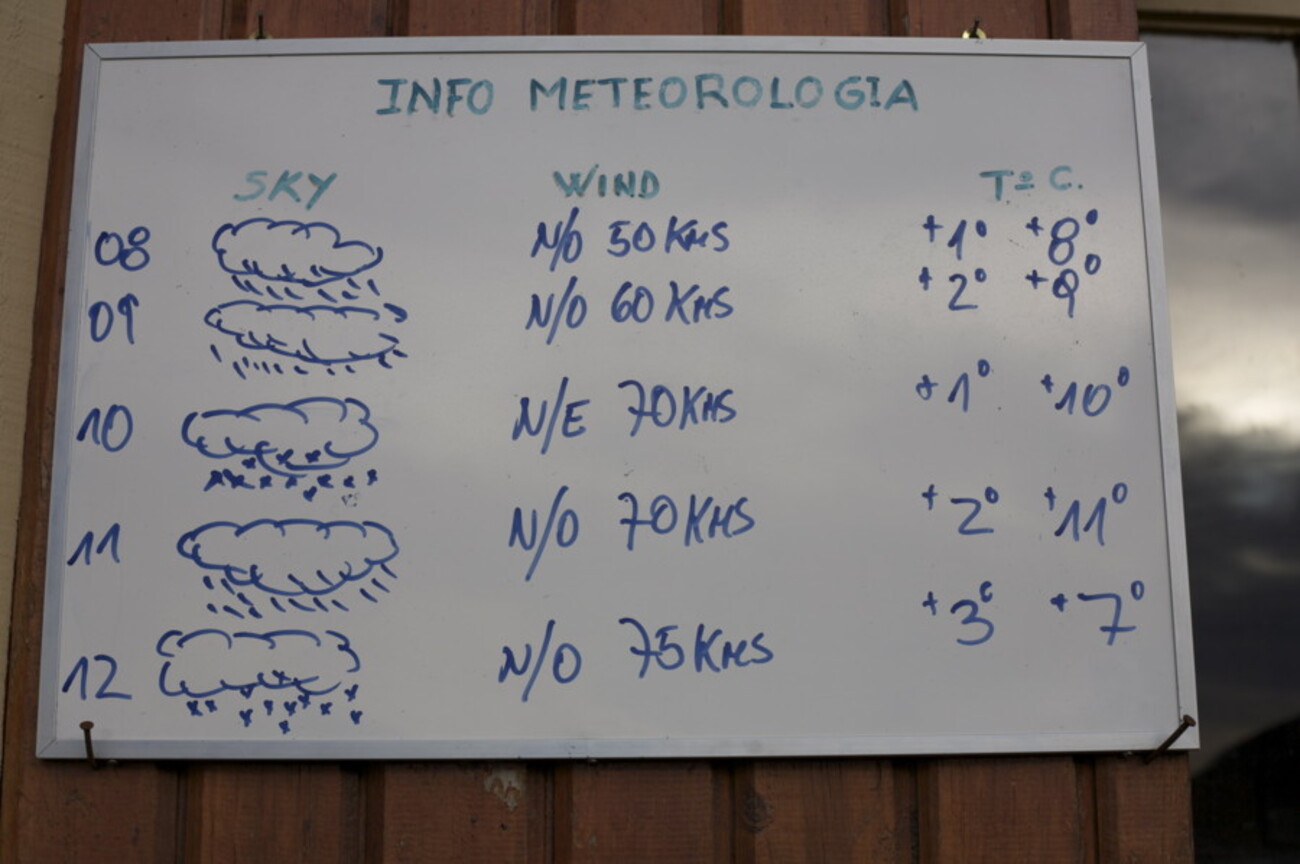 INFO METEOROLOGIA
SKY WIND Tº C.
08 N/O 50 KMS +1º +8º
09 N/O 60 KMS +2º +9º
10 N/E 70 KMS +1º +10º
11 N/O 70 KMS +2º +11º
12 N/O 75 KMS +3º +7º